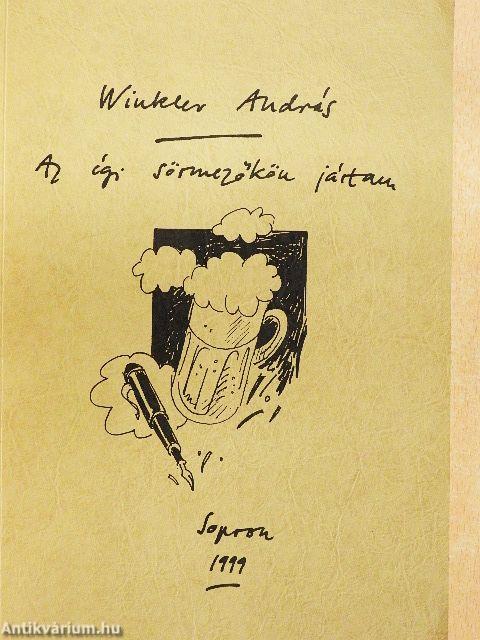 Winkler András
Az égi sörmezőkön jártam
Sopron
1999
Antikvárium.hu